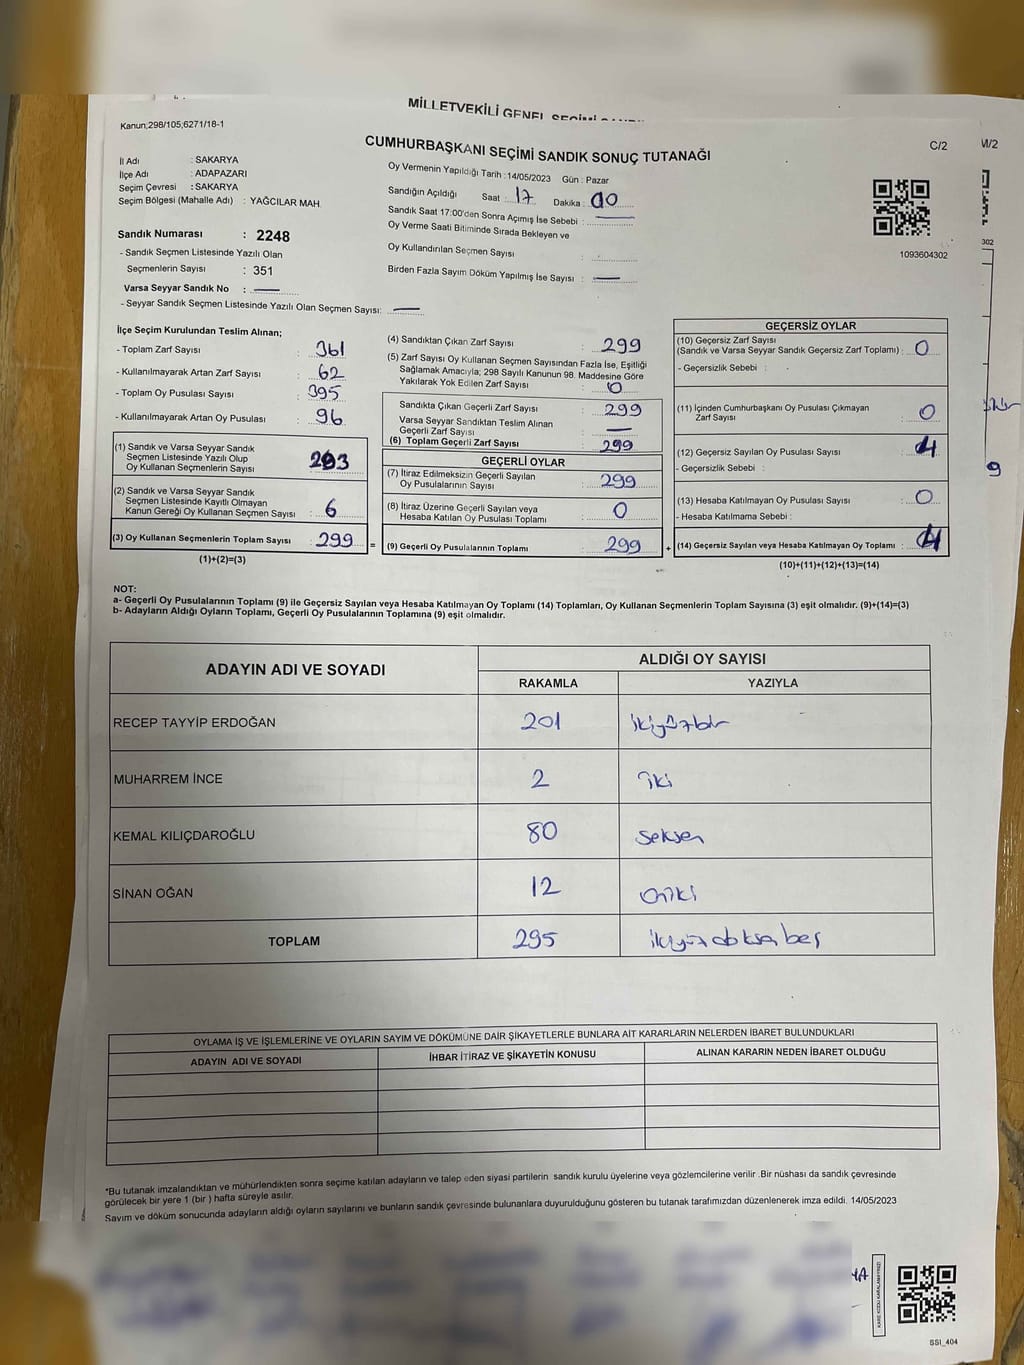 MİLLETVEKİLİ GENEL SEÇİMİ
Kanun;298/105;6271/18-1
CUMHURBAŞKANI SEÇİMİ SANDIK SONUÇ TUTANAĞI
C/2
M/2
İl Adı : SAKARYA
İlçe Adı : ADAPAZARI
Seçim Çevresi : SAKARYA
Seçim Bölgesi (Mahalle Adı) : YAĞCILAR MAH.
Oy Vermenin Yapıldığı Tarih :14/05/2023 Gün : Pazar
Sandığın Açıldığı Saat : 17 Dakika : 00
Sandık Saat 17:00'den Sonra Açımış İse Sebebi : —
Oy Verme Saati Bitiminde Sırada Bekleyen ve
Oy Kullandırılan Seçmen Sayısı :
Birden Fazla Sayım Döküm Yapılmış İse Sayısı : —
1093604302
302
Sandık Numarası : 2248
- Sandık Seçmen Listesinde Yazılı Olan
Seçmenlerin Sayısı : 351
Varsa Seyyar Sandık No : —
- Seyyar Sandık Seçmen Listesinde Yazılı Olan Seçmen Sayısı: —
İlçe Seçim Kurulundan Teslim Alınan;
- Toplam Zarf Sayısı : 361
- Kullanılmayarak Artan Zarf Sayısı : 62
- Toplam Oy Pusulası Sayısı : 395
- Kullanılmayarak Artan Oy Pusulası : 96
(1) Sandık ve Varsa Seyyar Sandık
Seçmen Listesinde Yazılı Olup
Oy Kullanan Seçmenlerin Sayısı : 293
(2) Sandık ve Varsa Seyyar Sandık
Seçmen Listesinde Kayıtlı Olmayan
Kanun Gereği Oy Kullanan Seçmen Sayısı : 6
(3) Oy Kullanan Seçmenlerin Toplam Sayısı : 299 =
(1)+(2)=(3)
(4) Sandıktan Çıkan Zarf Sayısı : 299
(5) Zarf Sayısı Oy Kullanan Seçmen Sayısından Fazla İse, Eşitliği
Sağlamak Amacıyla; 298 Sayılı Kanunun 98. Maddesine Göre
Yakılarak Yok Edilen Zarf Sayısı : 0
Sandıkta Çıkan Geçerli Zarf Sayısı : 299
Varsa Seyyar Sandıktan Teslim Alınan
Geçerli Zarf Sayısı : —
(6) Toplam Geçerli Zarf Sayısı : 299
GEÇERLİ OYLAR
(7) İtiraz Edilmeksizin Geçerli Sayılan
Oy Pusulalarının Sayısı : 299
(8) İtiraz Üzerine Geçerli Sayılan veya
Hesaba Katılan Oy Pusulası Toplamı : 0
(9) Geçerli Oy Pusulalarının Toplamı : 299 +
GEÇERSİZ OYLAR
(10) Geçersiz Zarf Sayısı
(Sandık ve Varsa Seyyar Sandık Geçersiz Zarf Toplamı) : 0
- Geçersizlik Sebebi :
(11) İçinden Cumhurbaşkanı Oy Pusulası Çıkmayan
Zarf Sayısı : 0
(12) Geçersiz Sayılan Oy Pusulası Sayısı : 4
- Geçersizlik Sebebi :
(13) Hesaba Katılmayan Oy Pusulası Sayısı : 0
- Hesaba Katılmama Sebebi :
(14) Geçersiz Sayılan veya Hesaba Katılmayan Oy Toplamı : 4
(10)+(11)+(12)+(13)=(14)
9
NOT:
a- Geçerli Oy Pusulalarının Toplamı (9) ile Geçersiz Sayılan veya Hesaba Katılmayan Oy Toplamı (14) Toplamları, Oy Kullanan Seçmenlerin Toplam Sayısına (3) eşit olmalıdır. (9)+(14)=(3)
b- Adayların Aldığı Oyların Toplamı, Geçerli Oy Pusulalarının Toplamına (9) eşit olmalıdır.
ADAYIN ADI VE SOYADI
ALDIĞI OY SAYISI
RAKAMLA YAZIYLA
RECEP TAYYİP ERDOĞAN 201 ikiyüzbir
MUHARREM İNCE 2 iki
KEMAL KILIÇDAROĞLU 80 seksen
SİNAN OĞAN 12 oniki
TOPLAM 295 ikiyüzdoksanbeş
OYLAMA İŞ VE İŞLEMLERİNE VE OYLARIN SAYIM VE DÖKÜMÜNE DAİR ŞİKAYETLERLE BUNLARA AİT KARARLARIN NELERDEN İBARET BULUNDUKLARI
ADAYIN ADI VE SOYADI İHBAR İTİRAZ VE ŞİKAYETİN KONUSU ALINAN KARARIN NEDEN İBARET OLDUĞU
*Bu tutanak imzalandıktan ve mühürlendikten sonra seçime katılan adayların ve talep eden siyasi partilerin sandık kurulu üyelerine veya gözlemcilerine verilir .Bir nüshası da sandık çevresinde
görülecek bir yere 1 (bir ) hafta süreyle asılır.
Sayım ve döküm sonucunda adayların aldığı oyların sayılarını ve bunların sandık çevresinde bulunanlara duyurulduğunu gösteren bu tutanak tarafımızdan düzenlenerek imza edildi. 14/05/2023
KARE KODU KARALAMAYINIZ!
SSI_404